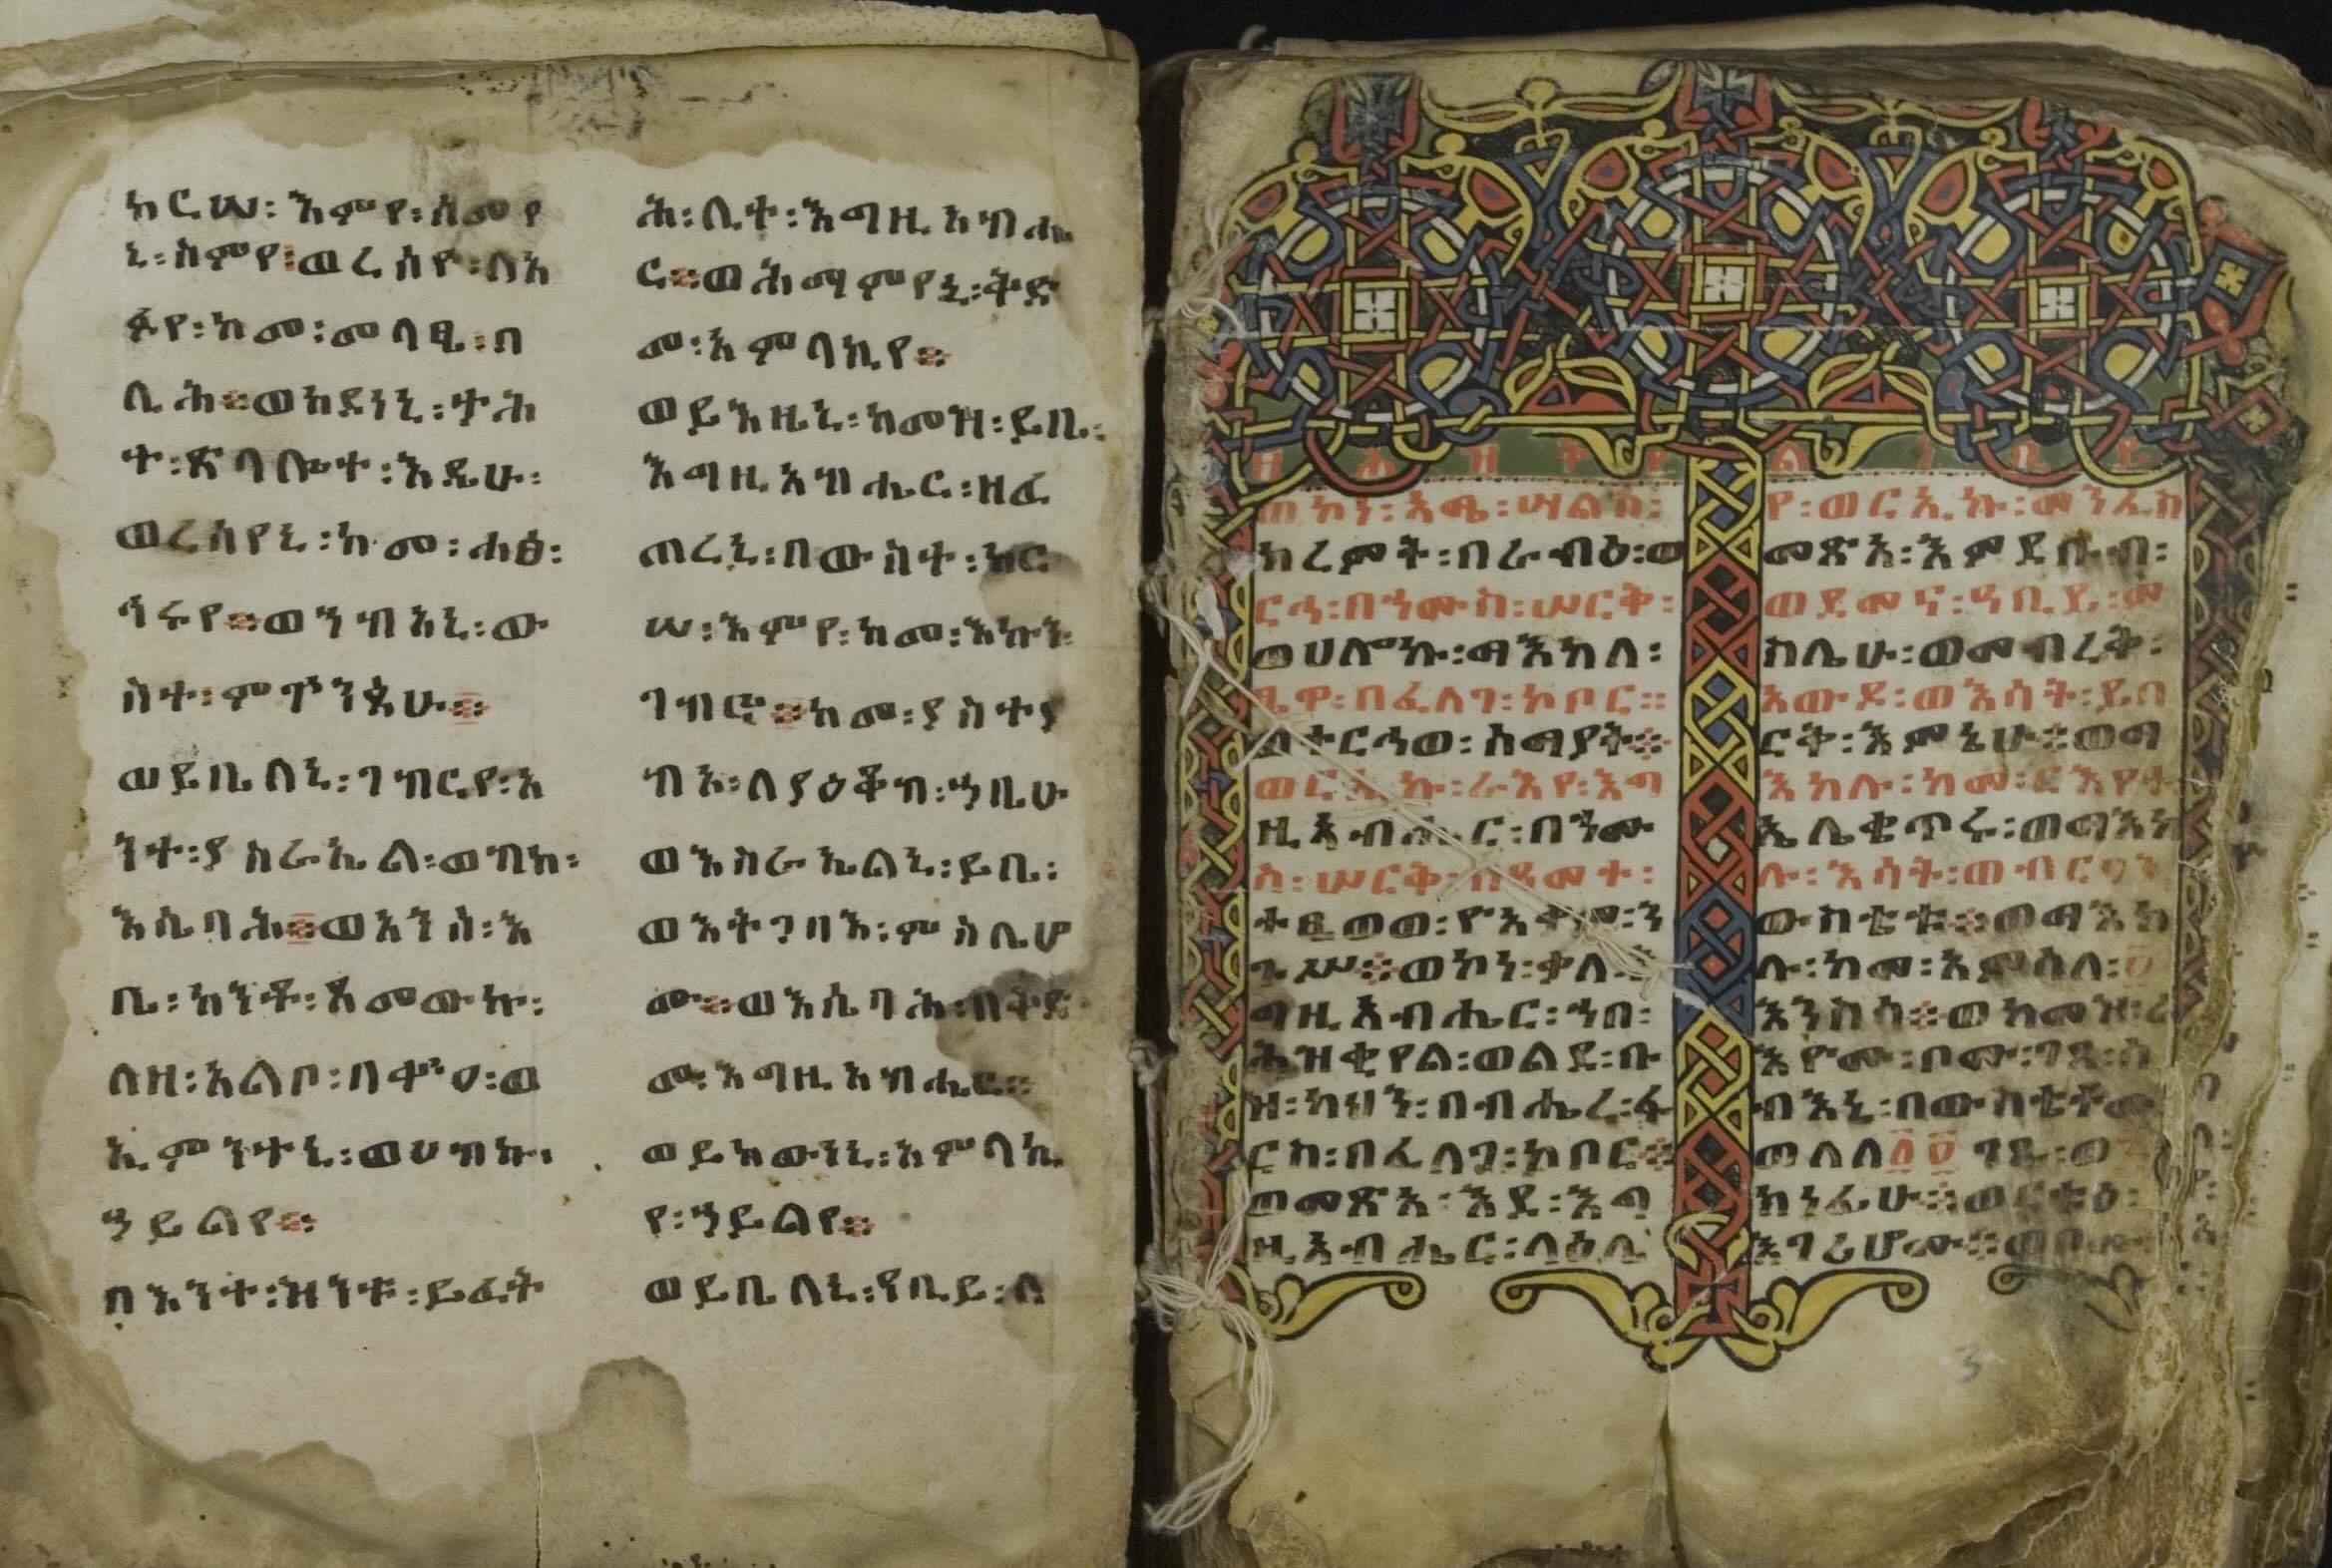 ከርሠ፡እምየ፡ሰመየ
ኒ፡ስምየ፡ወረሰየ፡ለአ
ፉየ፡ከመ፡መላፂ፡በ
ሊሕ።ወከደነኒ፡ታሕ
ተ፡ጽላሎተ፡እዴሁ፡
ወረሰየኒ፡ከመ፡ሐፅ፡
ኅሩየ።ወኀብአኒ፡ው
ስተ፡ምጕንጳሁ።
ወይቤለኒ፡ገብርየ፡አ
ንተ፡ያስራኤል፡ወብከ፡
እሴባሕ።ወአንሰ፡እ
ቤ፡ከንቶ፡ጻመውኩ፡
ለዘ፡አልቦ፡በቍዐ፡ወ
ኢምንተኒ፡ወሀብኩ፡
ኀይልየ።
በእንተ፡ዝንቱ፡ይፈት
ሕ፡ሊተ፡እግዚአብሔ
ር።ወሕማምየኒ፡ቅድ
መ፡አምላኪየ።
ወይእዜኒ፡ከመዝ፡ይቤ፡
እግዚአብሔር፡ዘፈ
ጠረኒ፡በውስተ፡ከር
ሠ፡እምየ፡ከመ፡እኩን፡
ገብሮ።ከመ፡ያስተጋ
ብእ፡ለያዕቆብ፡ኀቤሁ
ወእስራኤልኒ፡ይቤ፡
ወእትጋባእ፡ምስሌሆ
ሙ።ወእሴባሕ፡በቅድ
መ፡እግዚአብሔር።
ወይከውነኒ፡አምላኪ
የ፡ኀይልየ።
ወይቤለኒ፡የቢይ፡ለ
ወኮነ፡አሜ፡ሣልስ፡
ክረምት፡በራብዕ፡ወ
ርኅ፡በኀሙስ፡ሠርቅ፡
ወሀሎኩ፡ማእከለ፡
ፄዋ፡በፈለገ፡ኮቦር።
ወተርኅወ፡ሰማያት።
ወርኢኩ፡ራእየ፡እግ
ዚአብሔር፡በኀሙ
ስ፡ሠርቅ፡በዓመተ፡
ተፄወወ፡ዮአቄም፡ን
ጉሥ።ወኮነ፡ቃለ፡እ
ግዚአብሔር፡ኀበ፡
ሕዝቂየል፡ወልደ፡ቡ
ዝ፡ካህን፡በብሔረ፡ፋ
ርስ፡በፈለገ፡ኮቦር።
ወመጽአ፡እደ፡እግ
ዚአብሔር፡ላዕሌ
የ፡ወርኢኩ፡መንፈስ
መጽአ፡እምደቡብ፡
ወደመና፡ዓቢይ፡ም
ስሌሁ፡ወመብረቅ፡
አውዶ፡ወእሳት፡ይበ
ርቅ፡እምኔሁ።ወማ
እከሉ፡ከመ፡ርእየተ
ኤሌቄጥሩ፡ወማእከ
ሉ፡እሳት፡ወብርሃን
ውስቴቱ።ወማእከ
ሉ፡ከመ፡አምሳለ፡፬
እንስሳ።ወከመዝ፡ራ
እዮሙ፡ቦሙ፡ገጸ፡ሰ
ብእኒ፡በውስቴቶሙ
ወለለ፬፬ገጹ፡ወ
ክነፊሁ።ወርቱዕ፡
እገሪሆሙ።
3